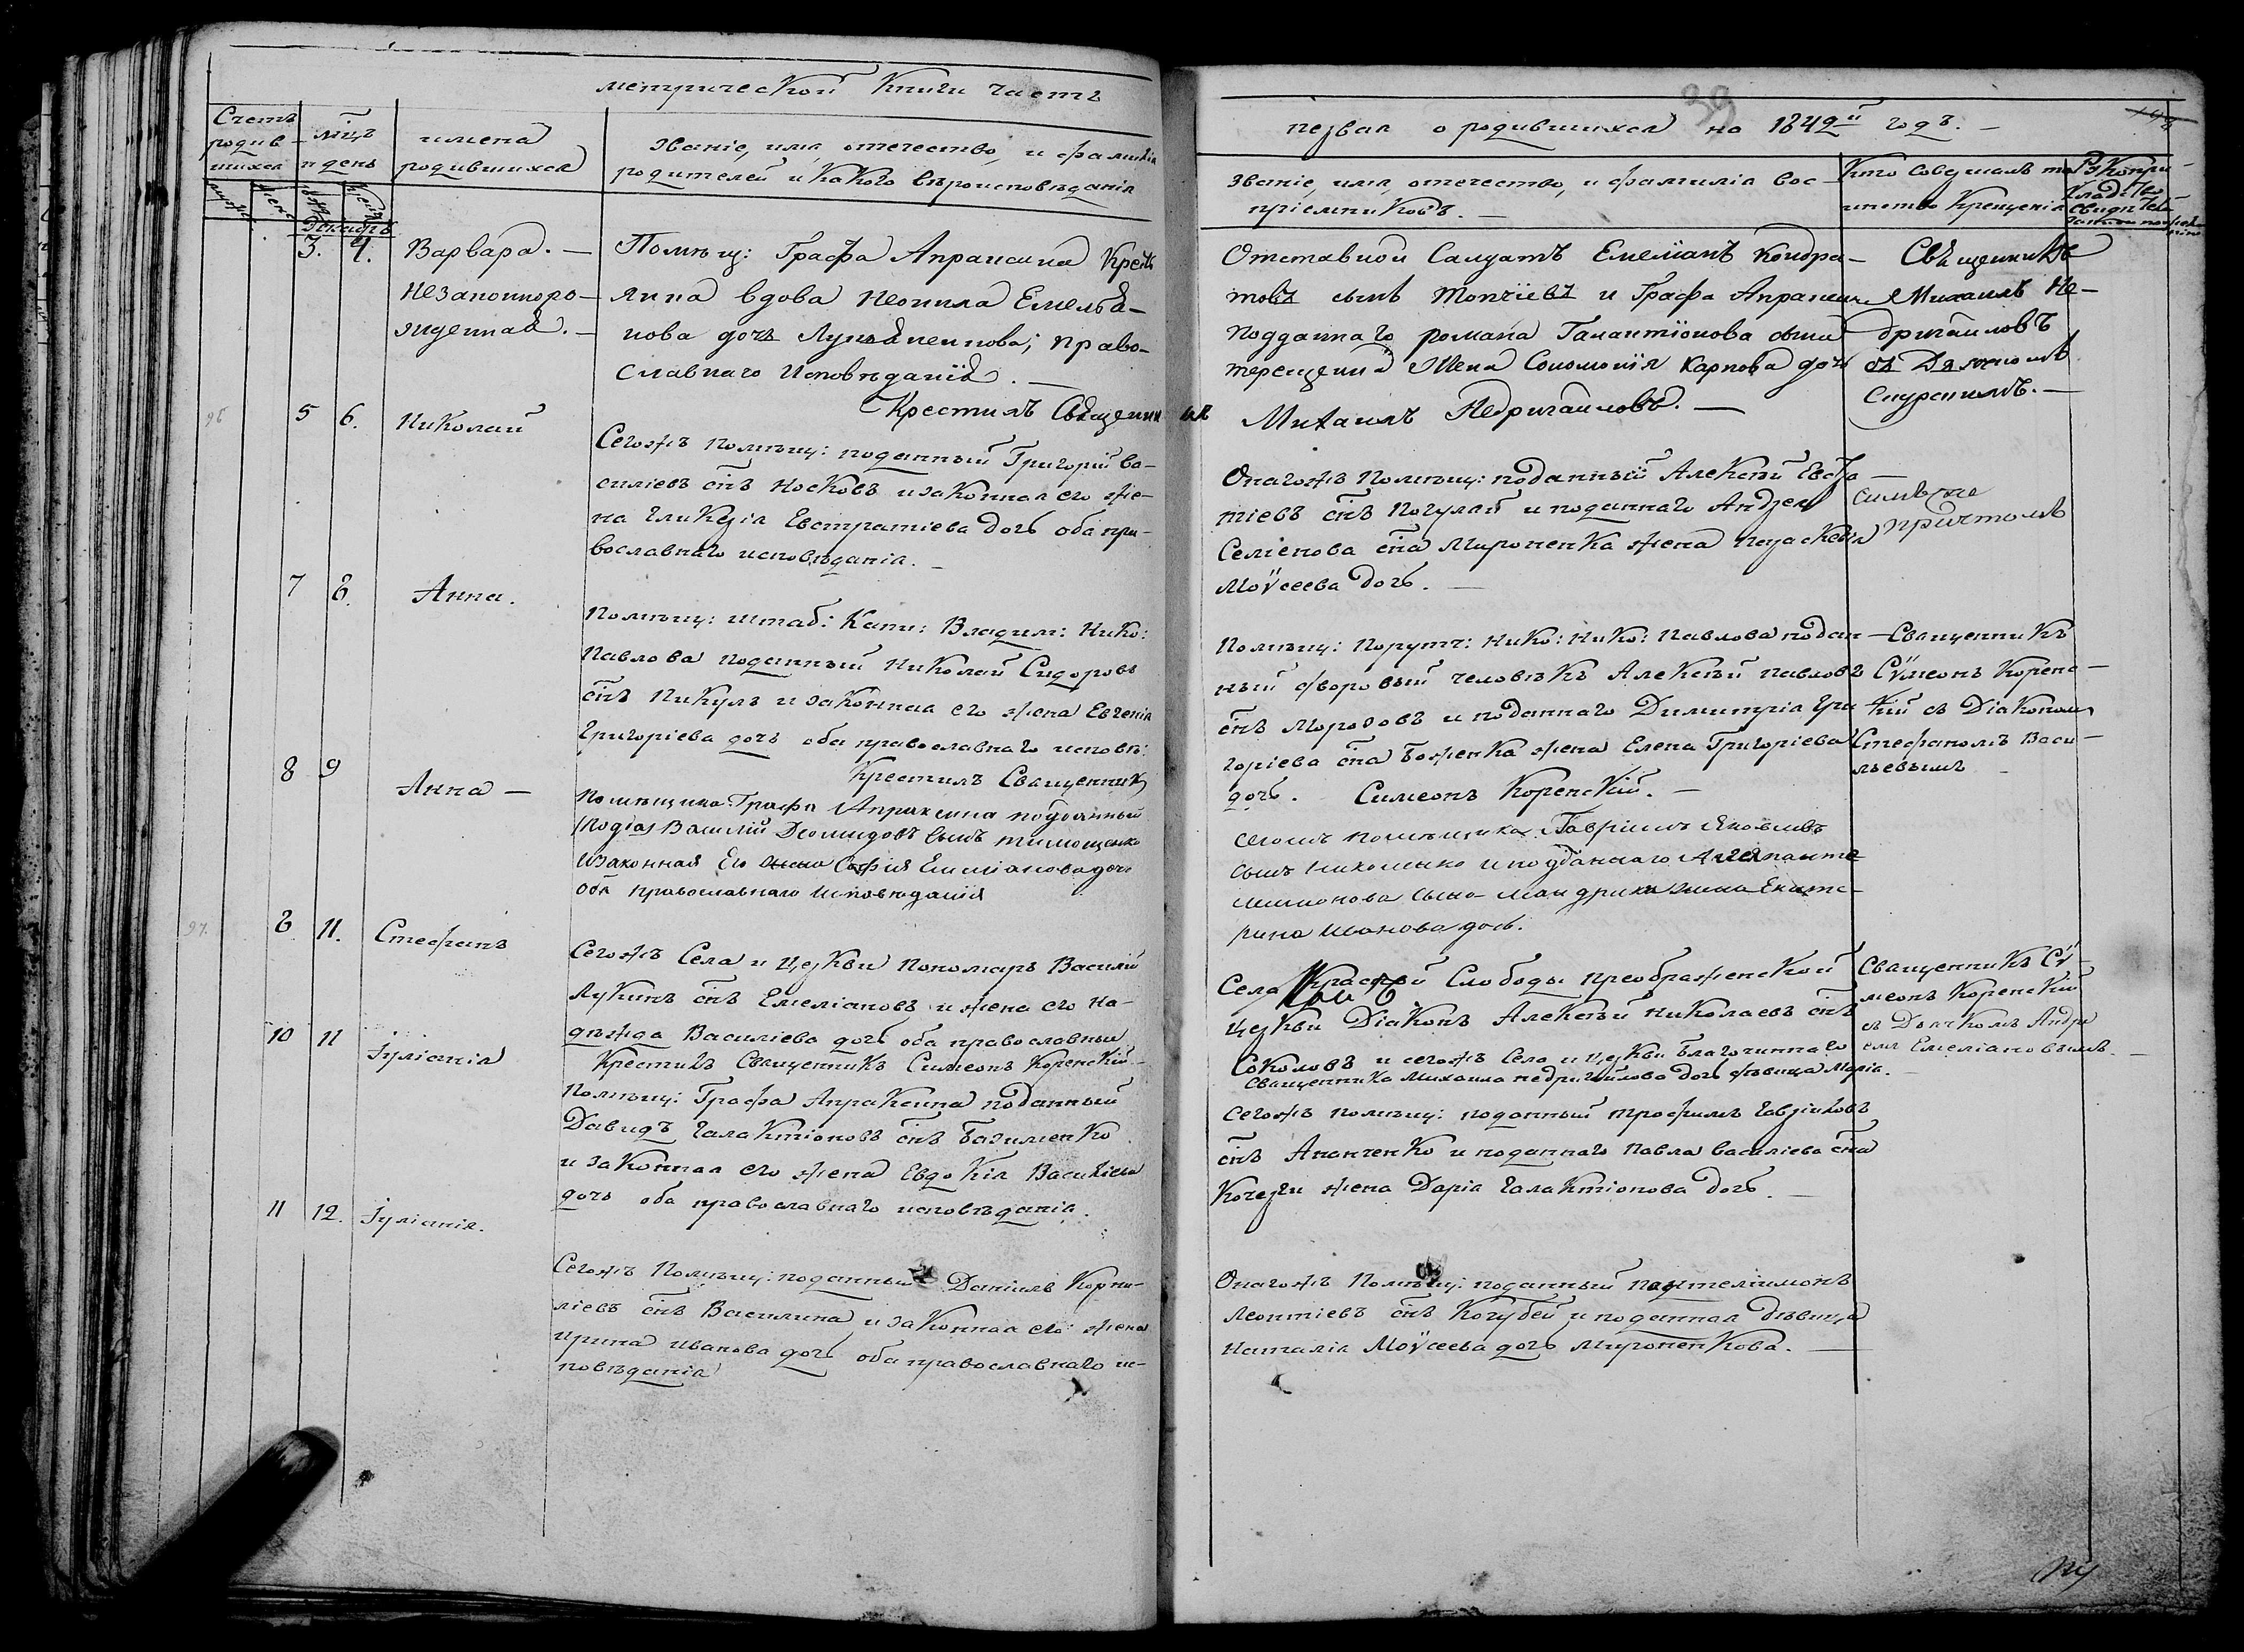 метрической Книги часть
Счетъ
родив-
шихся
мѣц
и день
имена
родившихся
званіе, имя, отечество, и фамилія
родителей и какого вѣроисповѣданія
Декабрь
3. 4.
Варвара. —
незаконноро-
жденная. —
Помѣщ: Графа Апраксина Крестья
янка вдова Неонила Емелья-
нова дочь православнаго Исповѣданія. —
Крестилъ Священникъ
96
5 6.
Николай
Сегожъ помѣщ: поданный Григорій Ва-
силіевъ сн҃ъ Носковъ и законная его же-
на Гликерія Евстратіева дочь оба пра-
вославнаго исповѣданія. —
7 8.
Анна.
Помѣщ: штаб: Капи: Владим: Нико:
Павлова поданный Николай Сидоровъ
сн҃ъ Пикулъ и законная его жена Евгенія
Григоріева дочь оба православнаго исповѣ:
Крестилъ Священникъ
8 9
Анна —
Помѣщика Графа Апраксина подданный
Василій Деомидовъ сынъ Тимощенко
и Законная Его Софія Емиліанова дочь
оба православнаго исповѣданія
97.
8 11.
Стефанъ
Сегожъ Села и Церкви Пономарь Василій
Лукинъ сн҃ъ Емеліановъ и жена его На-
дѣжда Василіева дочь оба православныи
Крестилъ Священникъ Симеонъ Коренскій —
10 11
Іуліанія
Помѣщ: Графа Апраксина поданный
Давидъ Галактіоновъ сн҃ъ
и законная его жена Евдокія Василіева
дочь оба православнаго исповѣданія.
11 12.
Іуліанія.
Сегожъ Помѣщ: поданный Даніилъ Корни-
ліевъ сн҃ъ Василина и законная его жена
Ирина Иванова дочь оба православнаго ис-
повѣданія
39
первая о родившихся на 1842й годъ. —
званіе, имя, отечество, и фамилія вос-
пріемниковъ. —
Кто совершалъ та
инство Крещенія
Отставной Салдатъ Емеліанъ Кондра-
товъ сынъ Топчіевъ и Графа Апраксина
подданнаго романа Галактіонова сына
терещенка Жена Соломонія Карпова дочь
Михаилъ Недригайловъ. —
Священникъ
Михаилъ Не-
дригайловъ
съ Дьячкомъ
Онагожъ Помѣщ: поданный Алексѣй Евста-
тіевъ сн҃ъ Погуляй и поданнаго Андрея
Семенова сн҃а Мироненка жена Параскевія
Моѵсеева дочь. —
симъ же
причтомъ
Помѣщ: Порутч: Нико: Нико: Павлова подан
ный дворовый человѣкъ Алексѣй Павловъ
сн҃ъ Морозовъ и поданнаго Димитрія Гри
горіева сн҃а Боженка жена Елена Григоріева
дочь. Симеонъ Коренскій. —
Священникъ
Сѵмеонъ Коренс-
кій съ Діакономъ
Стефаномъ Васи-
льевымъ —
сегожъ помѣщика Гавріилъ Яковлевъ
сынъ Михоленко и подданнаго
сына Мандрика жина Екате-
рина Иванова дочь.
Села Красной Слободы Преображенской
Церкви Діаконъ Алексѣй Николаевъ сн҃ъ
Соколовъ и сегожъ Села и Церкви Благочиннаго
Священника Михаила Недригайлова дочь дѣвица Марія. —
Священникъ Сѵ-
меонъ Коренскій
съ Дьячкомъ Андре
емъ Емеліановымъ. —
Сегожъ помѣщ: поданный Трофимъ Гавріиловъ
сн҃ъ Ананченко и поданнаго Павла Василіева сн҃а
Кочерги жена Дарія Галактіонова дочь. —
Онагожъ Помѣщ: поданный Пантелиимонъ
Леонтіевъ сн҃ъ Кочубей и поданная дѣвица
Наталія Моѵсеева дочь Мироненкова. —